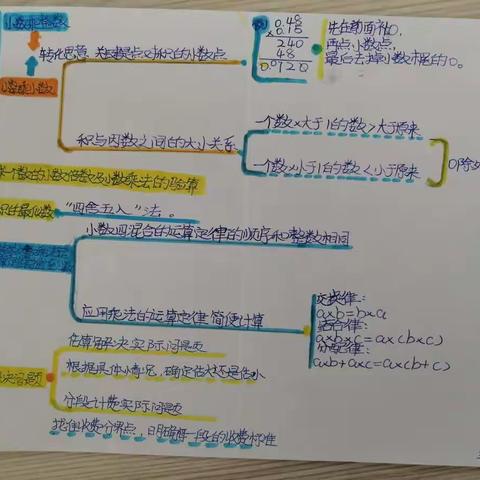 小数乘整数
小数乘小数
转化思意 关键是点对积的小数点
0.48
×0.15
240
48
0.0720
先在前面补0,
再点小数点,
最后去掉小数末尾的0。
积与因数之间的大小关系
一个数×大于1的数>大于原来
一个数×小于1的数<小于原来
0除外
求一个数的小数倍数及小数乘法的验算
积的近似数 "四舍五入"法。
小数四混合的运算定律的顺序和整数相同
应用乘法的运算定律简便计算
交换律:
a×b=b×a
结合律:
a×b×c=a×(b×c)
分配律:
a×b+a×c=a×(b+c)
估算解决实际问题
根据具体情况,确定估大还是估小
解决问题
分段计费实际问题
找准收费分界点,明确每一段的收费标准